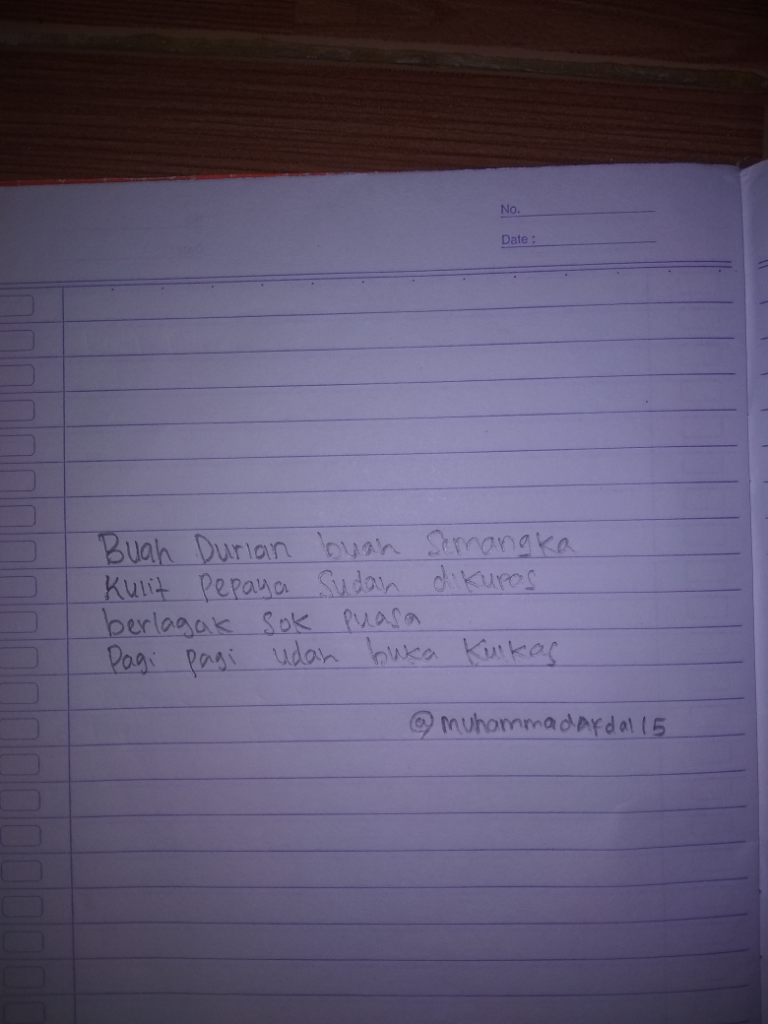 No.
Date :
Buah Durian buah Semangka
Kulit Pepaya Sudah dikupas
berlagak sok puasa
Pagi pagi udah buka Kulkas
@muhammadAfdal15